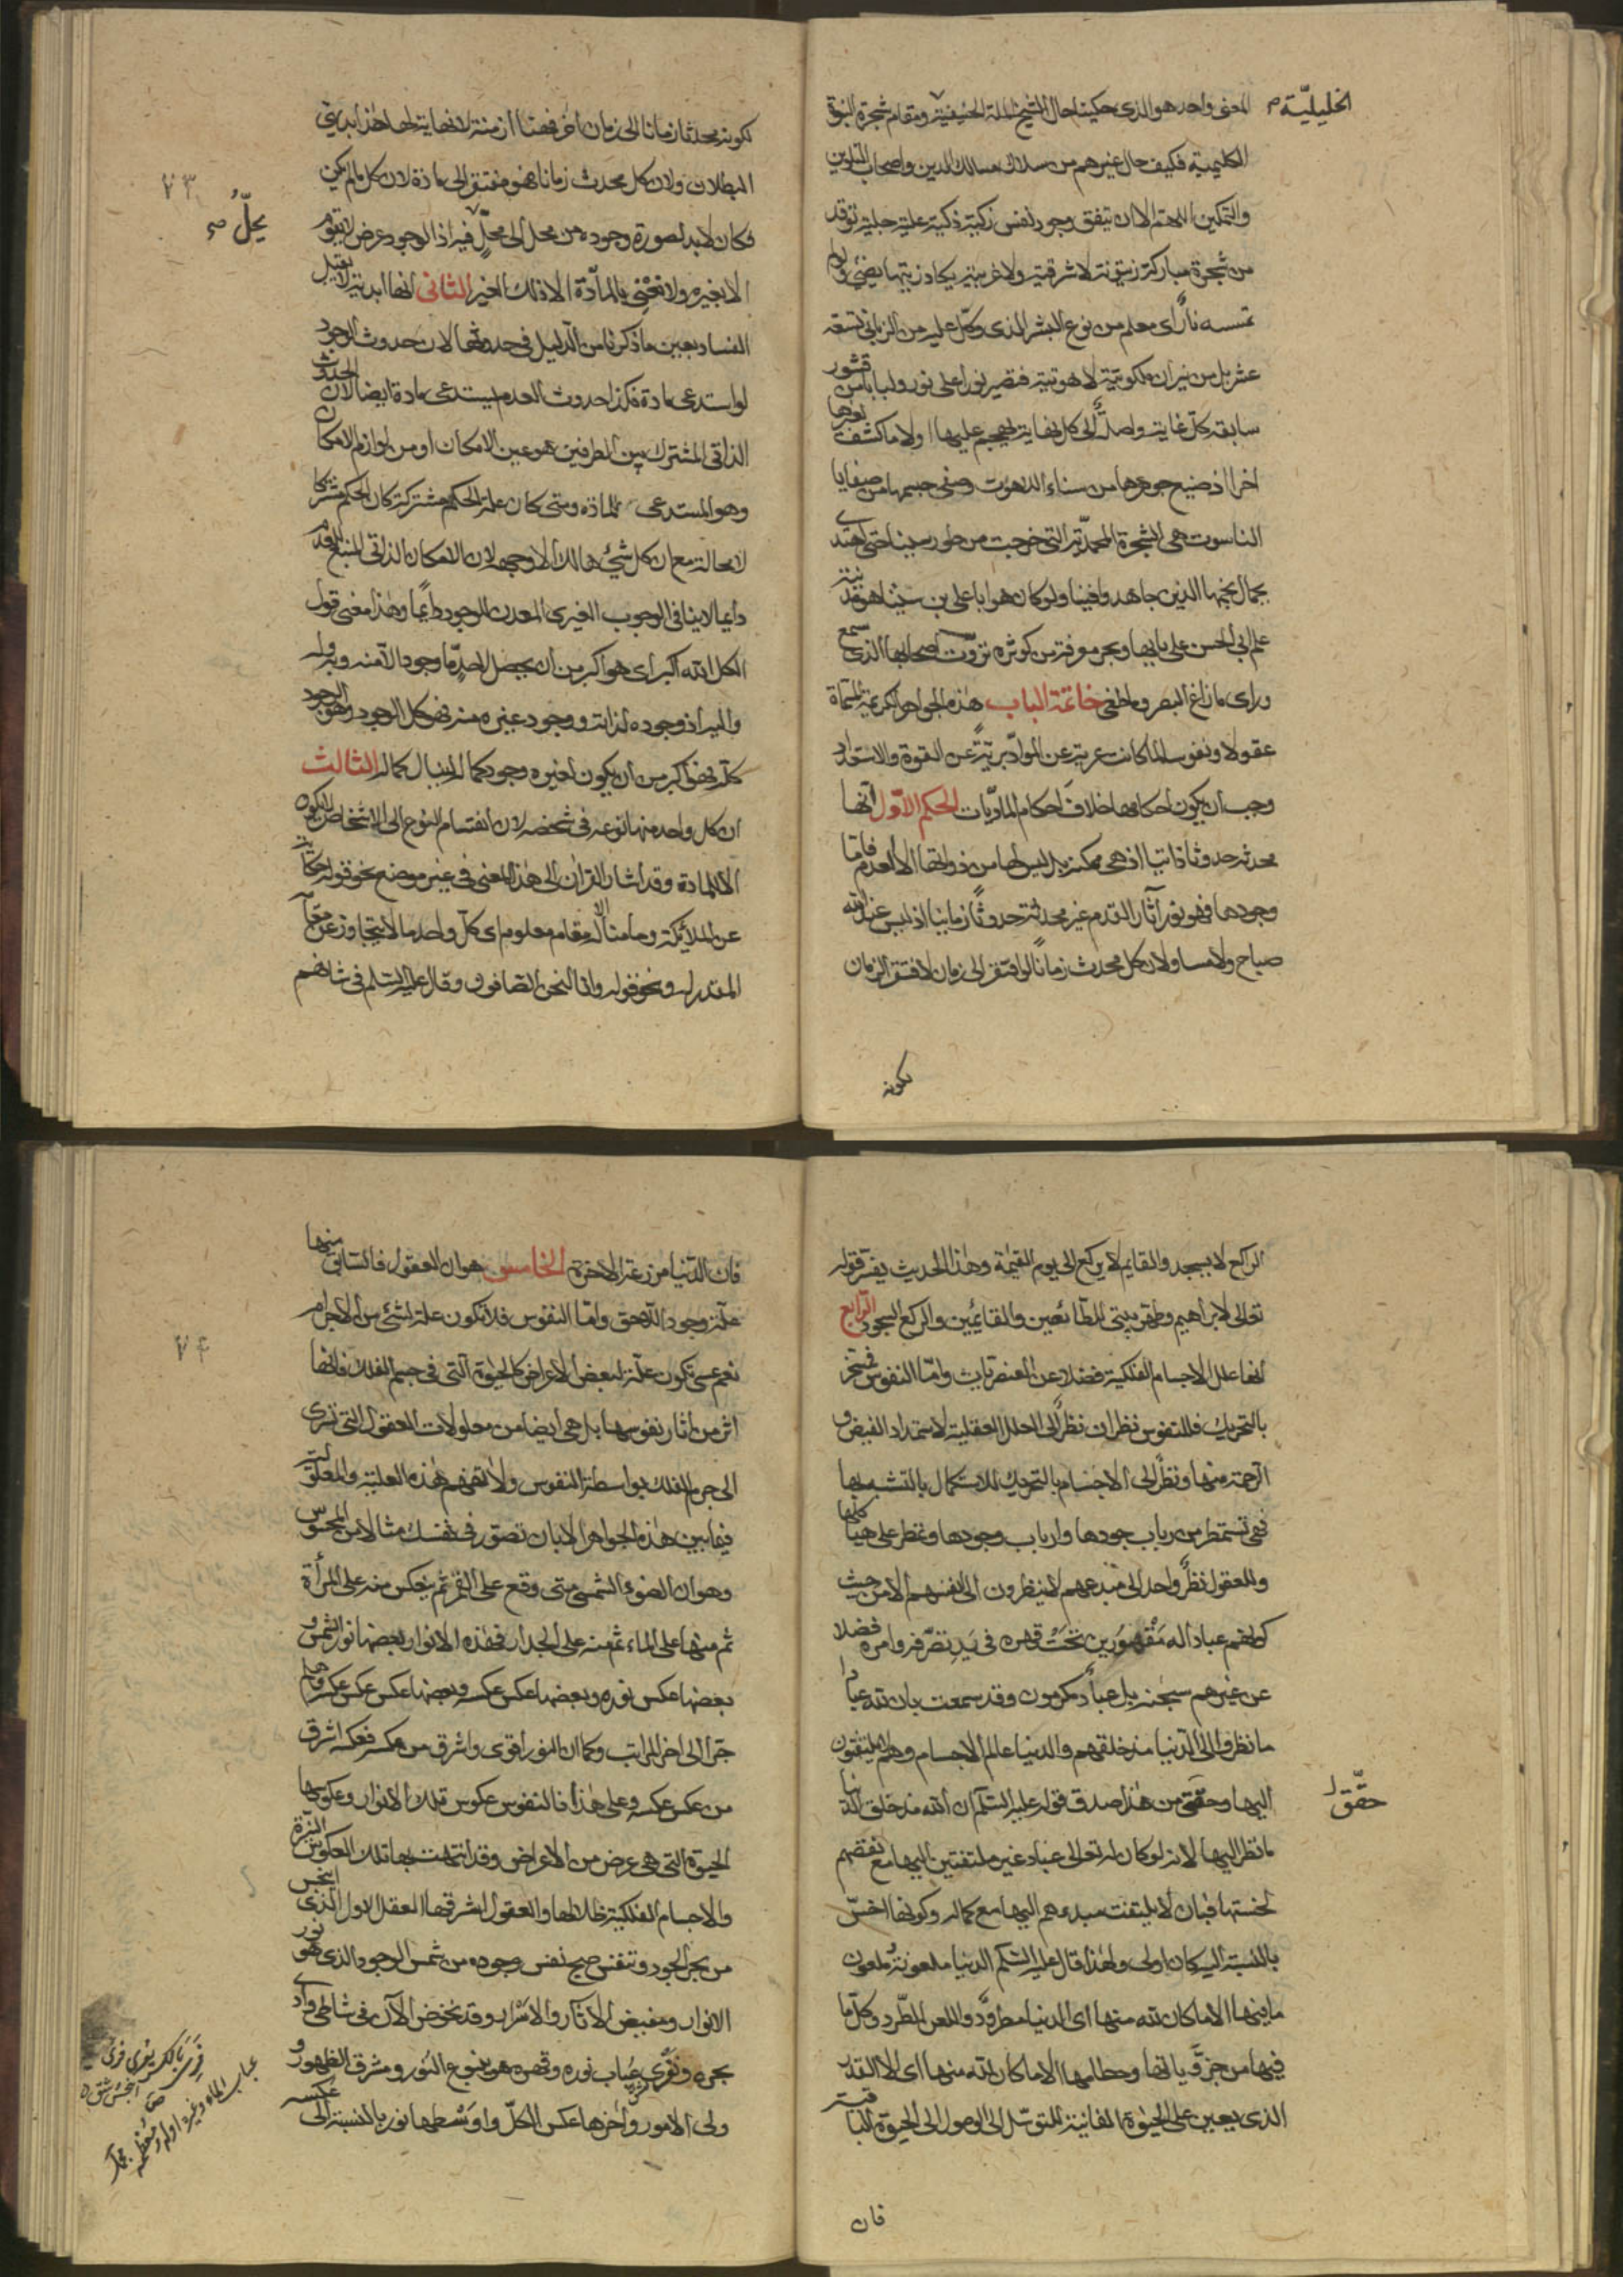 المعنى واحد هو الذى حكينا حال الشيخ الملة الحنيفية ومقام شجرة النبوة
الخليليّة صح
الكليمية فكيف حال غيرهم من سلاك مسالك الدين واصحاب التلوين
والتمكين اللهم الا ان يتفق وجود نفس زكية ذكية علية جلية توقد
من شجرة مباركة زيتونة لا شرقية ولا غربية يكاد زيتها يضئ ولو لم
تمسسه نارٌ اى معلم من نوع البشر الذى وكّل عليه من الزبانى تسعة
عشر بل من نيران ملكوتية لاهوتية فتصير نورا على نور ولبابا من قشور
سابقة كل غاية واصلةً الى كل نهاية لهجم عليها اولا ما كشف بغيرها
اخرا اذ ضيع جوهرها من سناء اللاهوت وصفى جسمها من صفايا
الناسوت هى الشجرة المحمدّية التى خرجت من طور سينا حتى اهتدى
بجمال نجمها الذين جاهدوا فينا ولو كان هو ابا على بن سينا هو مدينة
علم ابى الحسن على بابها وبحر معرفة من كوثره تروّت اصحابها الذى سمع
وراى ما زاغ البصر وما طغى خاتمة الباب هذه الجواهر الكريمة المسماة
عقولا ونفوسا لما كانت عرية عن الموادّ بريّةً عن القوة والاستعداد
وجب ان يكون احكامها خلافَ احكام الماديّات الحكم الاوّل انها
محدثة حدوثا ذاتيا اذ هى ممكنة بل ليس لها من ذواتها الا العدم فاما
وجودها فهو نور آثار القدم غير محدثة حدوثًا زمانيا اذ ليس عند الله
صباح ولا مساء ولان كل محدث زماناً لو افتقر الى زمان لافتقر الزمان
لكونه
لكونه محدثا زمانا الى زمان اخر فهنا ازمنة لا نهاية لها هذا بديهى
البطلان ولان كل محدث زمانا فهو مفتقر الى مادة لان كل ما لم يكن
٧٣
فكان لابد لصورة وجوده من محل الى محلّ فيه اذ الوجود عرض لا يتقوم
يحلُّ صح
الا بغيره ولا نعنى بالمادّة الا ذلك الغير الثانى انها ابدية لا يقبل
الفساد بعين ما ذكرنا من الدليل فى حدوثها لان حدوث الوجود
لو استدعى مادة فكذا حدوث العدم يستدعى مادة ايضا لان الحدوث
الذاتى المشترك بين الطرفين هو عين الامكان او من لوازم الامكان
وهو المستدعى للمادة ومتى كان علة الحكم مشتركة كان الحكم مشتركا
لا محالة مع ان كل شئ هالك الا وجهه لان الامكان الذاتى المنبع للعدم
دايما لا ينافى الوجوب الغيرى المعدن للوجود دايماً وهذا معنى قول
الكل الله اكبر اى هو اكبر من ان يحصل لاحدٍ ما وجود الا منه وبه وله
واليه اذ وجوده لذاته ووجود غيره منه فهو كل الوجود وهو الوجود
كله فهو اكبر من ان يكون لغيره وجود كمال بحيال كماله الثالث
ان كل واحد منها نوعه فى شخصه لان انقسام النوع الى الاشخاص لا يكون
الا للمادة وقد اشار القرآن الى هذا المعنى فى غير موضع نحو قوله حكاية
عن الملائكة وما منا الا له مقام معلوم اى كل واحد ما لا يتجاوز عن مقامه
المقدر له ونحو قوله وانا لنحن الصافون وقال عليه السلم فى شانهم
الراكع لا يسجد والقايم لا يركع الى يوم القيمة وهذا الحديث يفسّر قوله
تعالى لابراهيم وطهر بيتى للطائفين والقائمين والركع السجود الرابع
انها علل الاجسام الفلكية فضلا عن العنصريات وامّا النفوس فتتحرّ
بالتحريك فللنفوس نظران نظرٌ الى العلل العقلية لاستمداد الفيض و
الرحمة منها ونظرٌ الى الاجسام بالتحريك للاستكمال بالتشبه بها
فهى تستمطر من رباب جودها وارباب وجودها وتمطر على هياكلها
وللعقول نظرٌ واحد الى مبدعهم لا ينظرون الى انفسهم الا من حيث
كونهم عبادا له مَقْهُورين تحْتَ قهره فى يَدِ تصرّفه وامره فضلا
عن غيرهم سبحنه بل عبادٌ مكرمون وقد سمعت بان لله عبادا
ما نظروا الى الدنيا منذ خلقهم والدنيا عالم الاجسام وهم لا يلتفتون
اليها وحقق من هذا صدق قوله عليه السلم ان الله منذ خلق الدنيا
حقّق
ما نظر اليها لانه لو كان له تعالى عباد غير ملتفتين اليها مع نقصهم
لخستها فبان لا يلتفت مبدعهم اليها مع كماله وكونها اخسّ
بالنسبة اليه كان اولى ولهذا قال عليه السلم الدنيا ملعونةٌ ملعون
ما فيها الا ما كان لله منها اى الدنيا مطرودٌ واللعن الطّرد وكلّ ما
فيها من جزوياتها وحطامها الا ما كان لله منها اى الا القدر
الذى يعين على الحيوة الفانية للتوسّل الى الوصول الى الحيوة الباقية
فان
فان الدنيا مزرعة الاخرة الخامس هو ان العقول فالسابق منها
علة وجود اللاحق وامّا النفوس فلا تكون علة لشئ من الاجرام
نعم عسى تكون علة لبعض الاعراض كالحيوة التى فى جسم الفلك فانها
٧٤
اثر من اثار نفوسها بل هى ايضا من معلولات العقول التى تسرى
الى جرم الفلك بواسطة النفوس ولا تفهم هذه العلية والمعلولية
فيما بين هذه الجواهر الا بان تصوّر فى نفسك مثالا من المحسوس
وهو ان الضوء الشمسى متى وقع على القمر ثم ينعكس منه على المرأة
ثم منها على الماء ثم منه على الجدار فهذه الانوار بعضها نور الشمس و
بعضها عكس نوره وبعضها عكس عكسه وبعضها عكس عكس عكسه وهلم
جرا الى اخر المراتب وكما ان النور اقوى واشرق من عكسه فعكسه اشرق
من عكس عكسه وعلى هذا فالنفوس عكوس تلك الانوار وعكوسها
الحيوة التى هى عرض من الاعراض وقد انتهت بها تلك العكوس النيّرة
والاجسام الفلكية ظلالها والعقول اشرقها العقل الاول الذى انبجس
من بحر الجود وتنفس صبح نفس وجوده من شمس الوجود الذى هو نور
الانوار ومفيض الاثار والاسْرار وقد نخوض الآن فى شاطئ وادى
بحره ونفرى عباب نوره وقهره هو ينبوع النور ومشرق الظهور و
ولى الامور وآخرها عكس الكلّ واوسْطها نور بالنسبة الى عكسه
عباب الماء وغيره اوله ومعظمه